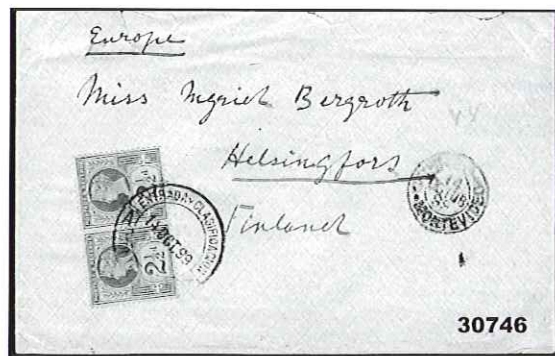 Europe
Miss Ingrid Bergroth
Helsingfors
Finland
ENTRADA Y CLASIFICACION
14 OCT 99
2½
2½
MONTEVIDEO
30746